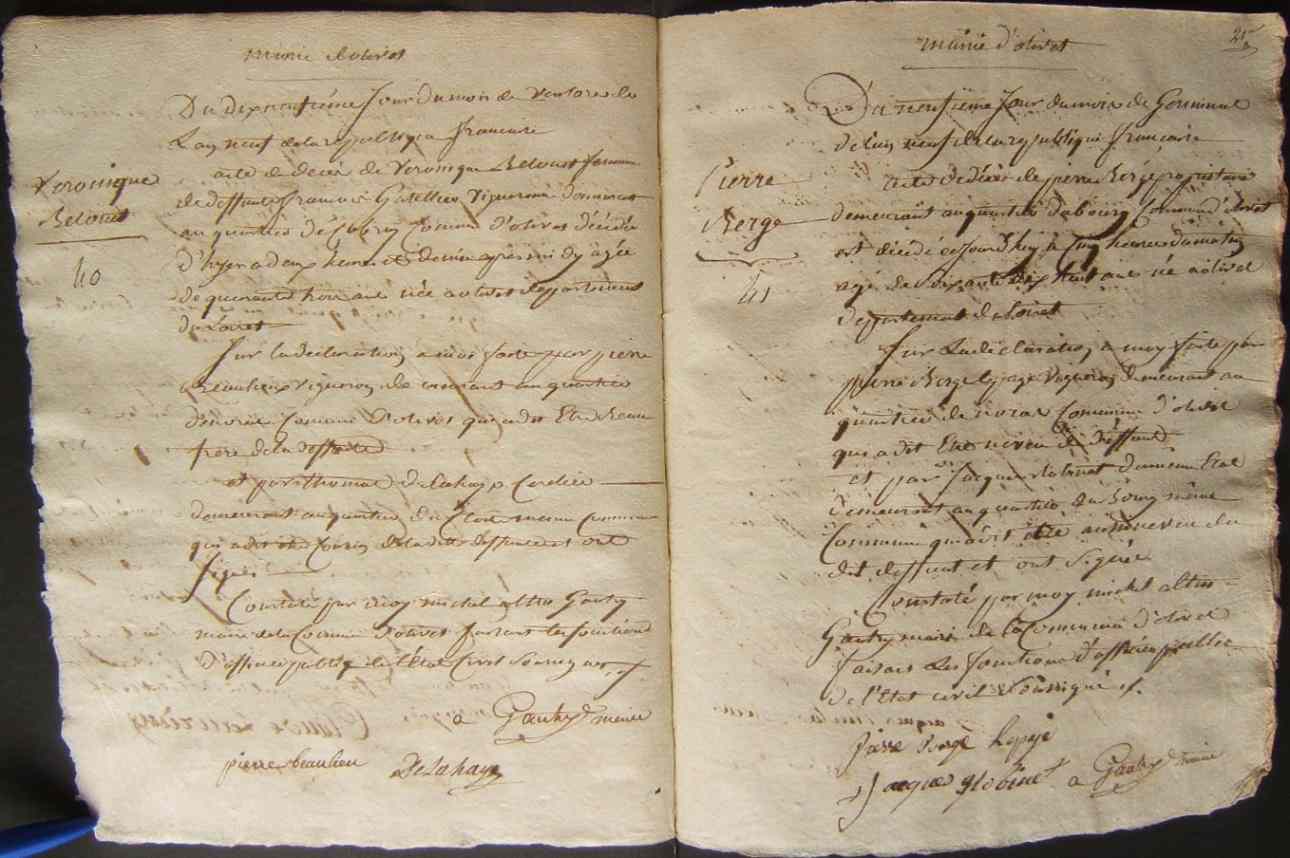 mairie d'olivet
Du dix neufième Jour du mois de Ventose de
L'an neuf de la republique francaise
acte de décès de Veronique Belouet femme
de deffunt francois Vigneron demeurant
au quartier de Comune d'olivet décédée
d'hyer a deux heures et demie après midy agée
de quarante ans née a olivet departement
du Loiret
Veronique
Belouet
40
Sur la declaration a moi faite par pierre
Beaulieu Vigneron demeurant au quartier
Comune d'olivet qui a dit Etre Beau
frere de la deffunte
et par thomas Delahaye Cordier
demeurant au quartier du meme Commune
qui a dit etre Cousin de la ditte deffunte et ont
signé
Constaté par moy michel altin Gautry
maire de la Comune d'olivet faisant les fonctions
d'officier public de l'état Civil Soussigné
a Gautry maire
pierre beaulieu Delahaye
mairie d'olivet
Du neufième Jour du mois de Germinal
de l'an neuf de la republique francaise
Acte de décès de pierre Berge propriétaire
demeurant au quartier du bourg Commune d'olivet
est décédé ce Jourd'huy a Cinq heures du matin
agé de soixante dix huit ans né a olivet
departement du Loiret
Pierre
Berge
41
Sur La déclaration a moy faite par
pierre Berge lepage Vigneron demeurant au
quartier de Commune d'olivet
qui a dit Etre neveu du deffunt
et par Jacques du meme Etat
demeurant au quartier du Bourg même
Commune qui a dit etre aussi neveu du
dit deffunt et ont signé
Constaté par moy michel altin
Gautry maire de la Commune d'olivet
faisant les fonctions d'officier public
de l'Etat civil Soussigné
pierre berge lepage
Jacques a Gautry maire